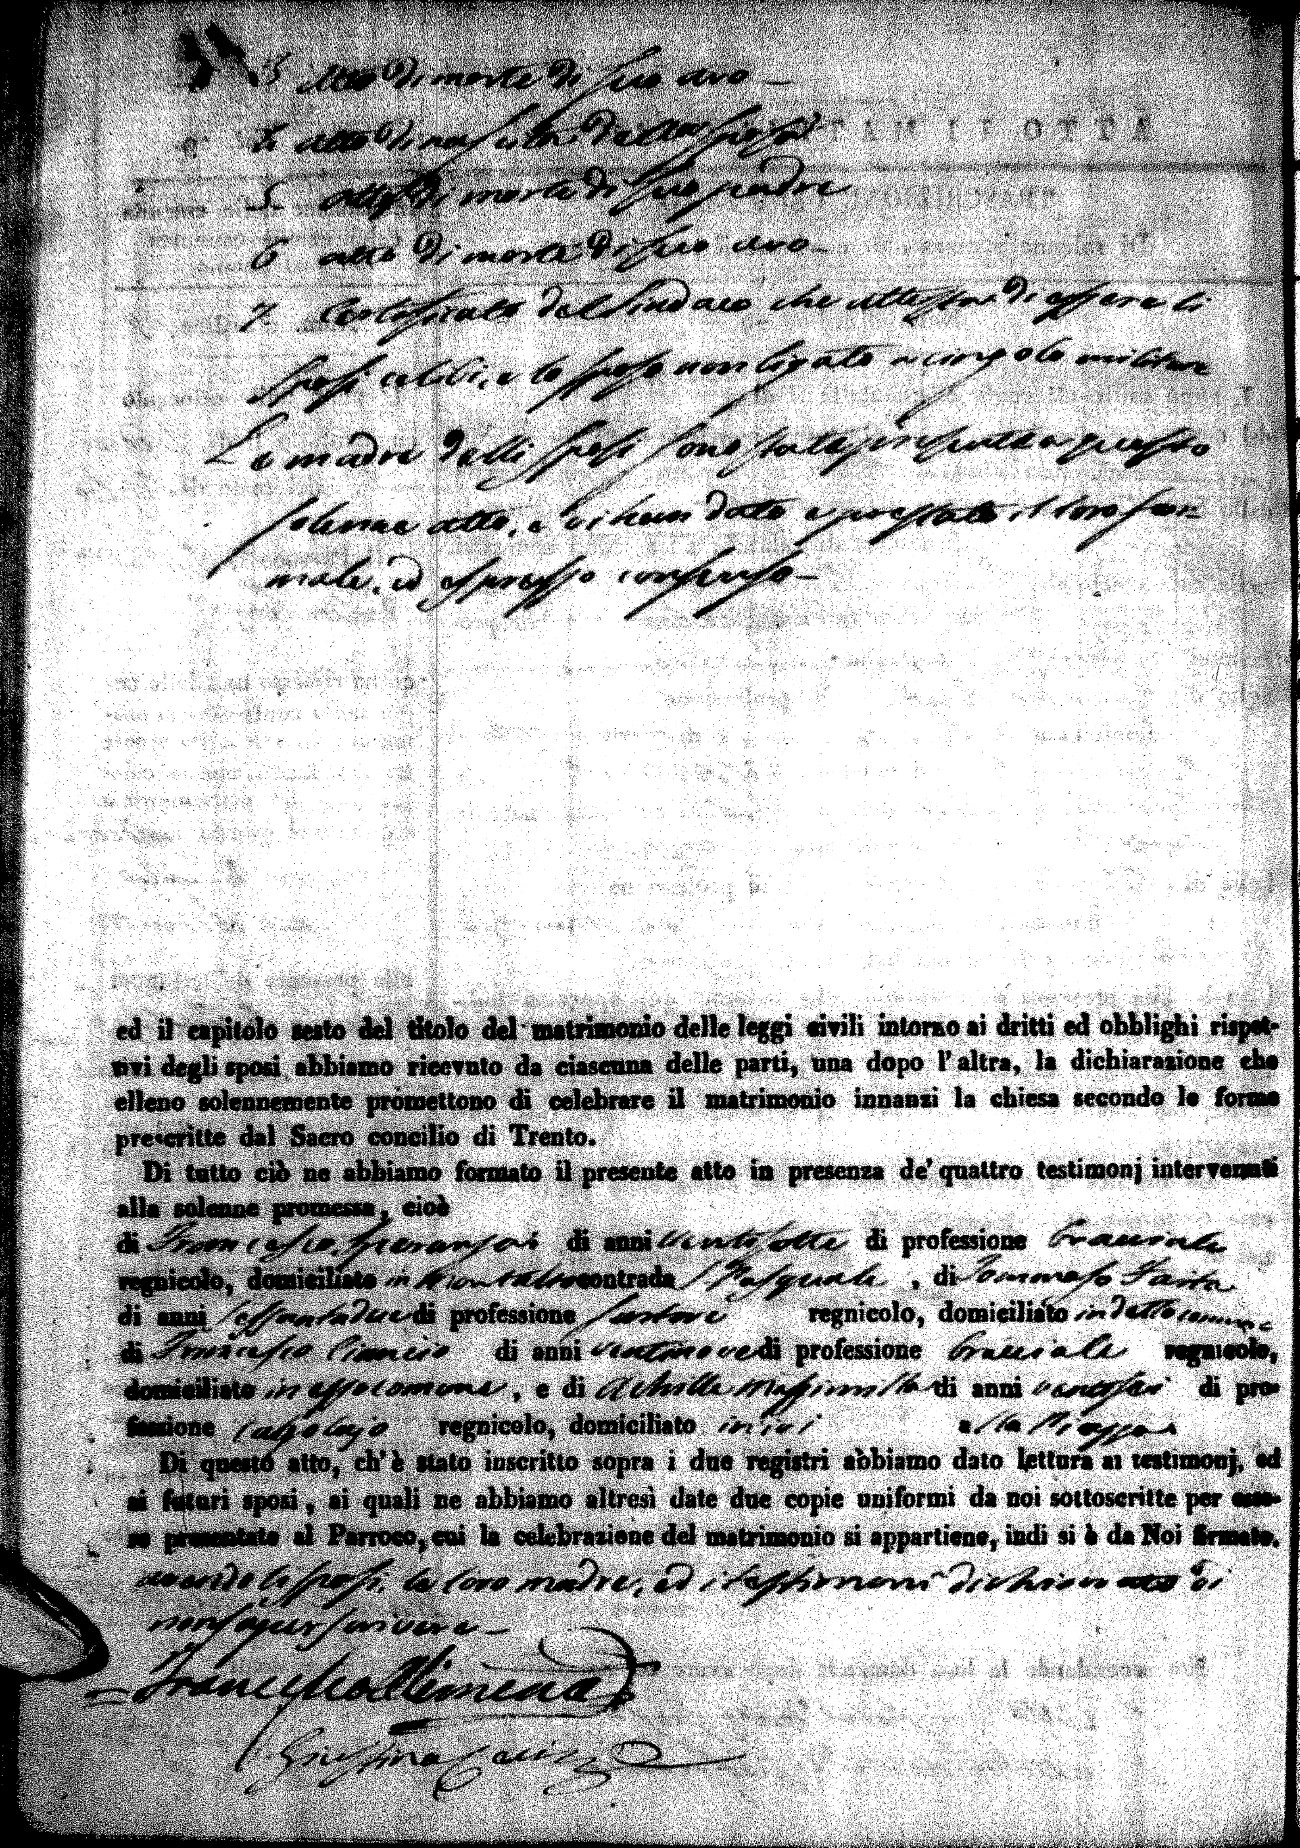 3 Atto di morte di suo avo —
4 atto di nascita della sposa
5 atto di morte di suo padre
6 atto di morte di suo avo —
7 Certificato del Sindaco che attesta di essere li
sposi celibi, e lo sposo non ligato a cingolo militare
Le madre delli sposi sono state presente a questo
solenne atto, e vi han dato e prestato il loro for-
male, ed espresso consenso —
ed il capitolo sesto del titolo del matrimonio delle leggi civili intorno ai dritti ed obblighi rispet-
tivi degli sposi abbiamo ricevuto da ciascuna delle parti, una dopo l'altra, la dichiarazione che
elleno solennemente promettono di celebrare il matrimonio innanzi la chiesa secondo le forme
prescritte dal Sacro concilio di Trento.
Di tutto ciò ne abbiamo formato il presente atto in presenza de' quattro testimonj intervenuti
alla solenne promessa, cioè
di Francesco di anni ventisette di professione bracciale
regnicolo, domiciliato in Montalto contrada S. Pasquale, di Tommaso
di anni sessantadue di professione sartore regnicolo, domiciliato in detto comune
di Francesco Ciancio di anni ventinove di professione bracciale regnicolo,
domiciliato in esso comune, e di Achille di anni ventisei di pro-
fessione calzolajo regnicolo, domiciliato in ivi alla Piazza
Di questo atto, ch'è stato inscritto sopra i due registri abbiamo dato lettura ai testimonj, ed
ai futuri sposi, ai quali ne abbiamo altresì date due copie uniformi da noi sottoscritte per esse-
re presentate al Parroco, cui la celebrazione del matrimonio si appartiene, indi si è da Noi firmato,
avendo li sposi, le loro madre, ed i testimoni dichiarato di
non saper scrivere —
Francesco Alimena
Giustino